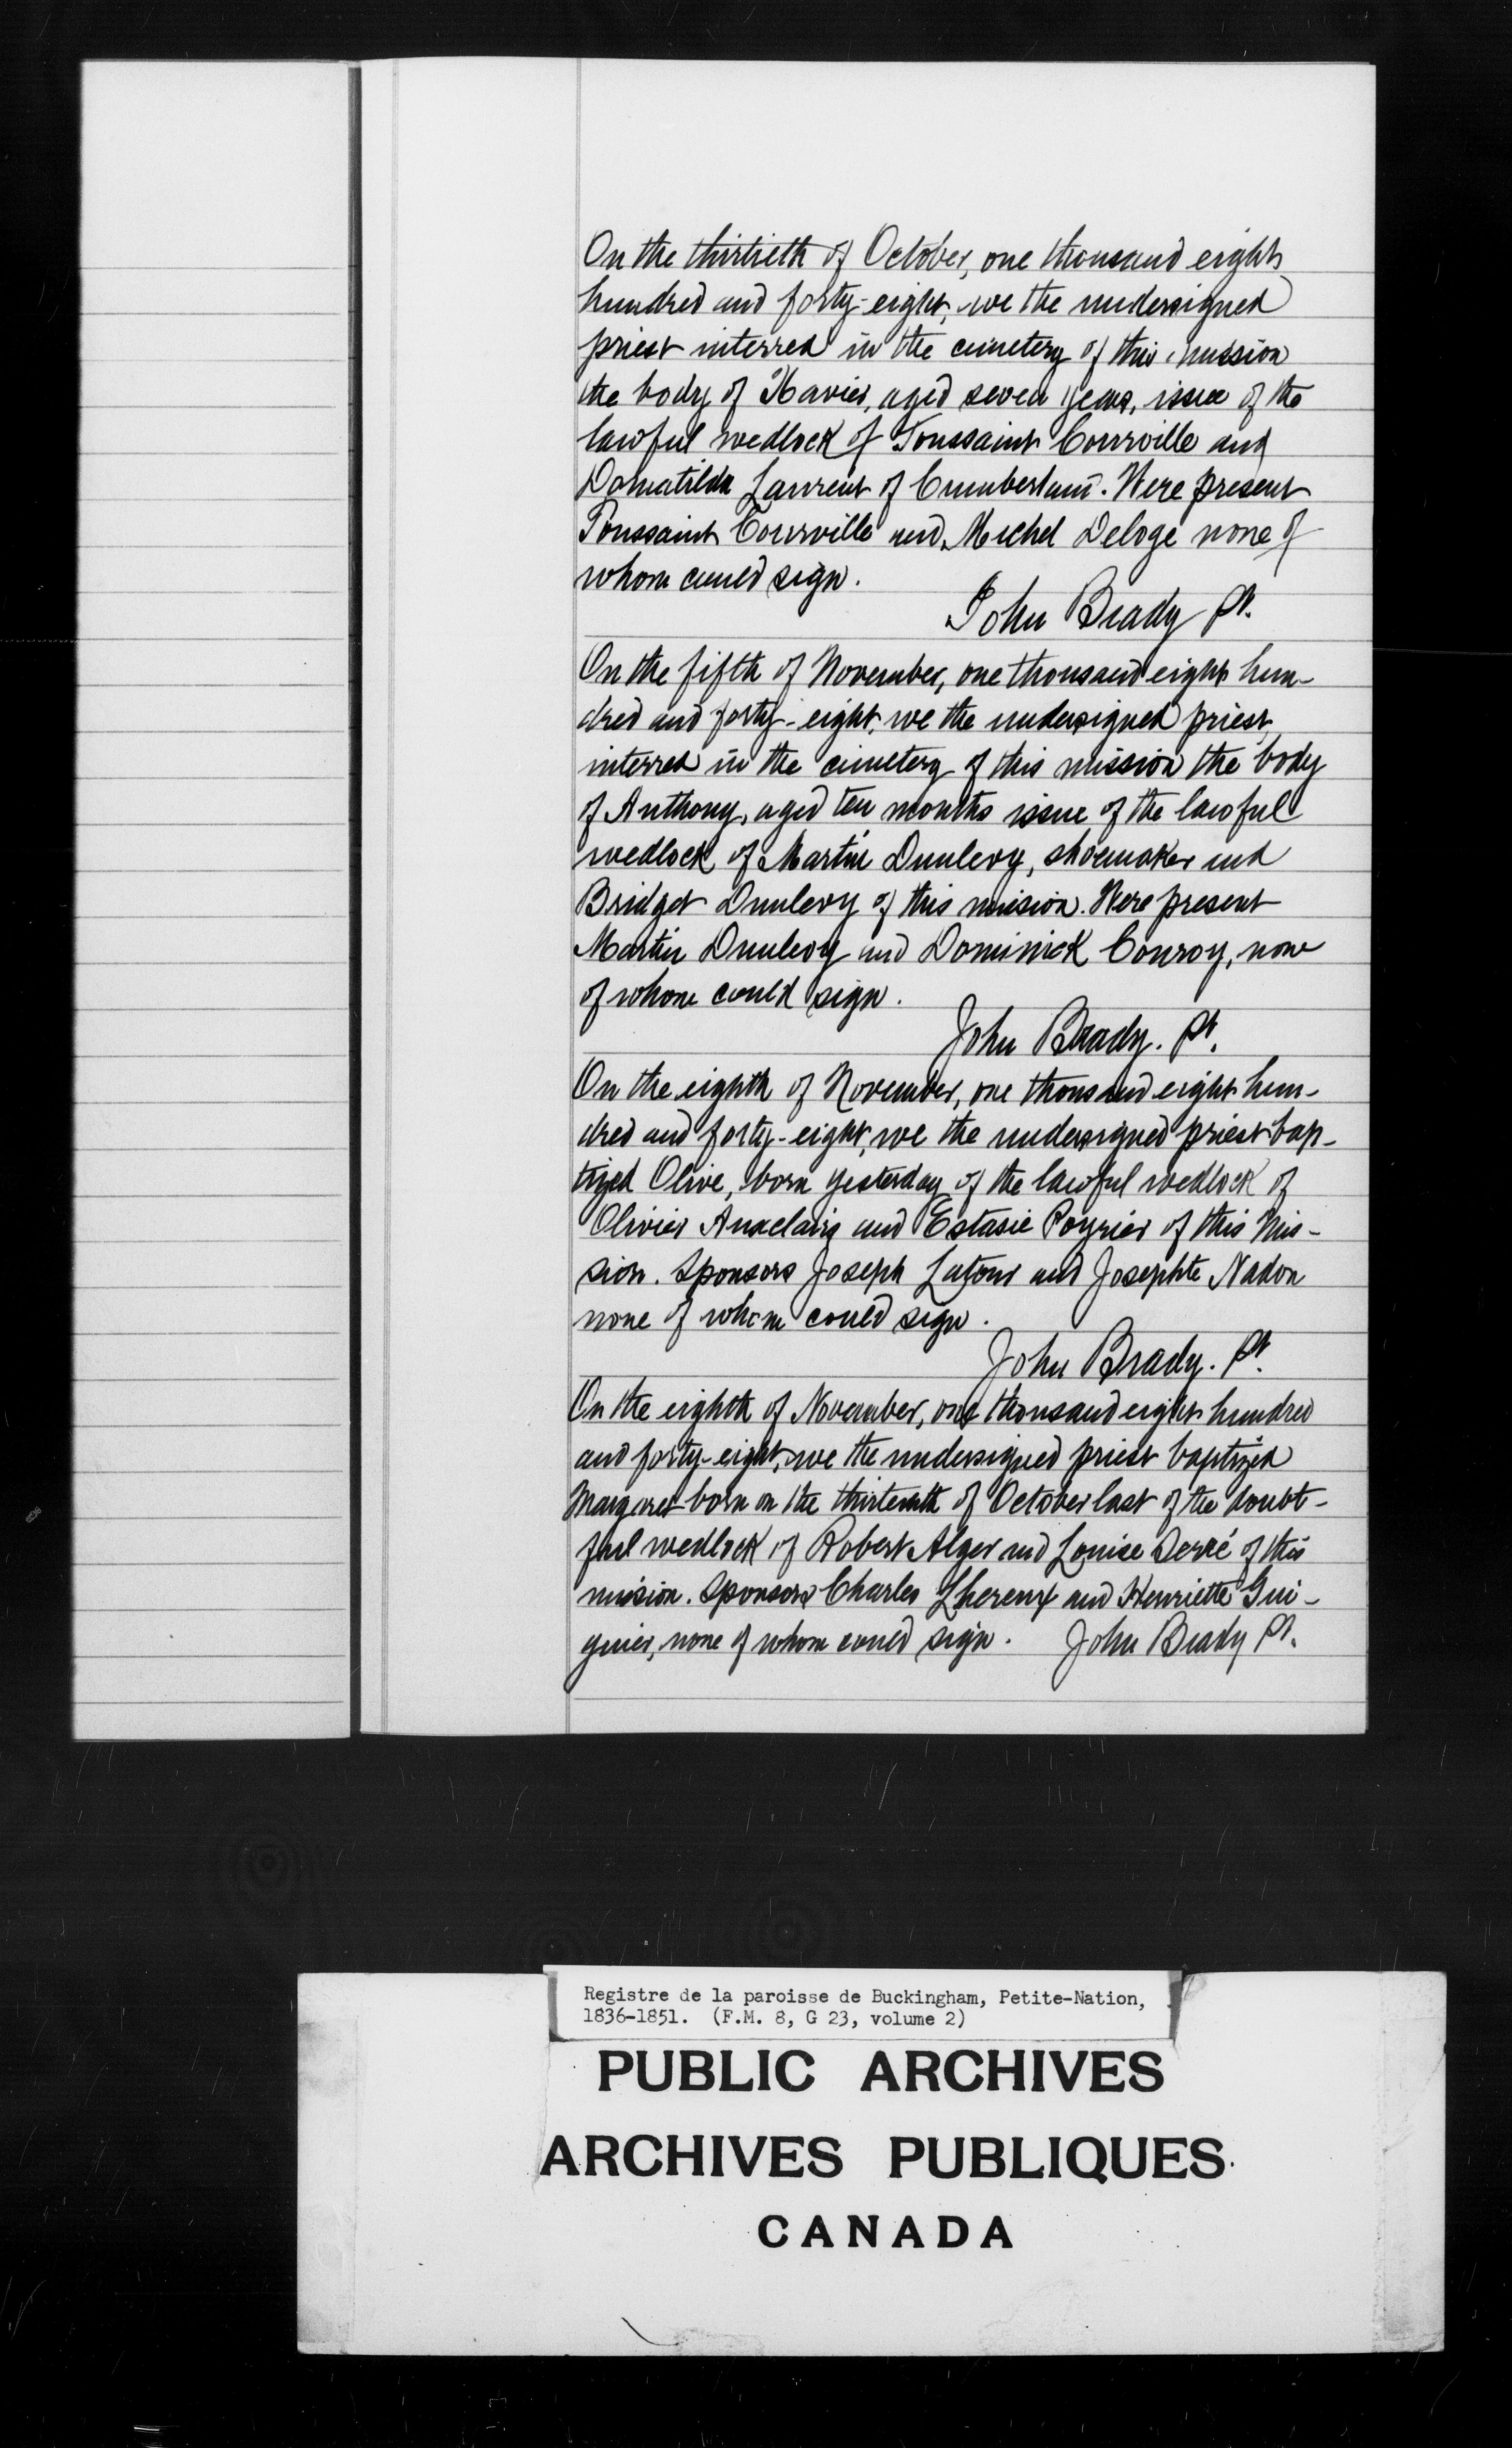 On the thirtieth of October, one thousand eight
hundred and forty-eight, we the undersigned
priest interred in the cimetery of this mission
the body of Xavier, aged seven years, issue of the
lawful wedlock of Toussaint Courville and
Domatilda Laurent of Cumberland. Were present
Toussaint Courville and Michel Deloge none of
whom could sign.
John Brady Pt.
On the fifth of November, one thousand eight hun-
dred and forty-eight, we the undersigned priest,
interred in the cimetery of this mission the body
of Anthony, aged ten months issue of the lawful
wedlock of Martin Dunlevy, shoemaker and
Bridget Dunlevy of this mission. Were present
Martin Dunlevy and Dominick Conroy, none
of whom could sign.
John Brady. Pt.
On the eighth of November, one thousand eight hun-
dred and forty-eight, we the undersigned priest bap-
tized Olive, born yesterday of the lawful wedlock of
Olivier Auxclaiq and Estasie Poyrier of this mis-
sion. Sponsors Joseph Latour and Josephte Nadon
none of whom could sign.
John Brady. Pt.
On the eighth of November, one thousand eight hundred
and forty-eight, we the undersigned priest baptized
Margaret born on the thirteenth of October last of the doubt-
ful wedlock of Robert Alger and Louise Serré of this
mission. Sponsors Charles Lhereux and Henriette Gui-
guier, none of whom could sign. John Brady Pt.
Registre de la paroisse de Buckingham, Petite-Nation,
1836-1851. (F.M. 8, G 23, volume 2)
PUBLIC ARCHIVES
ARCHIVES PUBLIQUES
CANADA